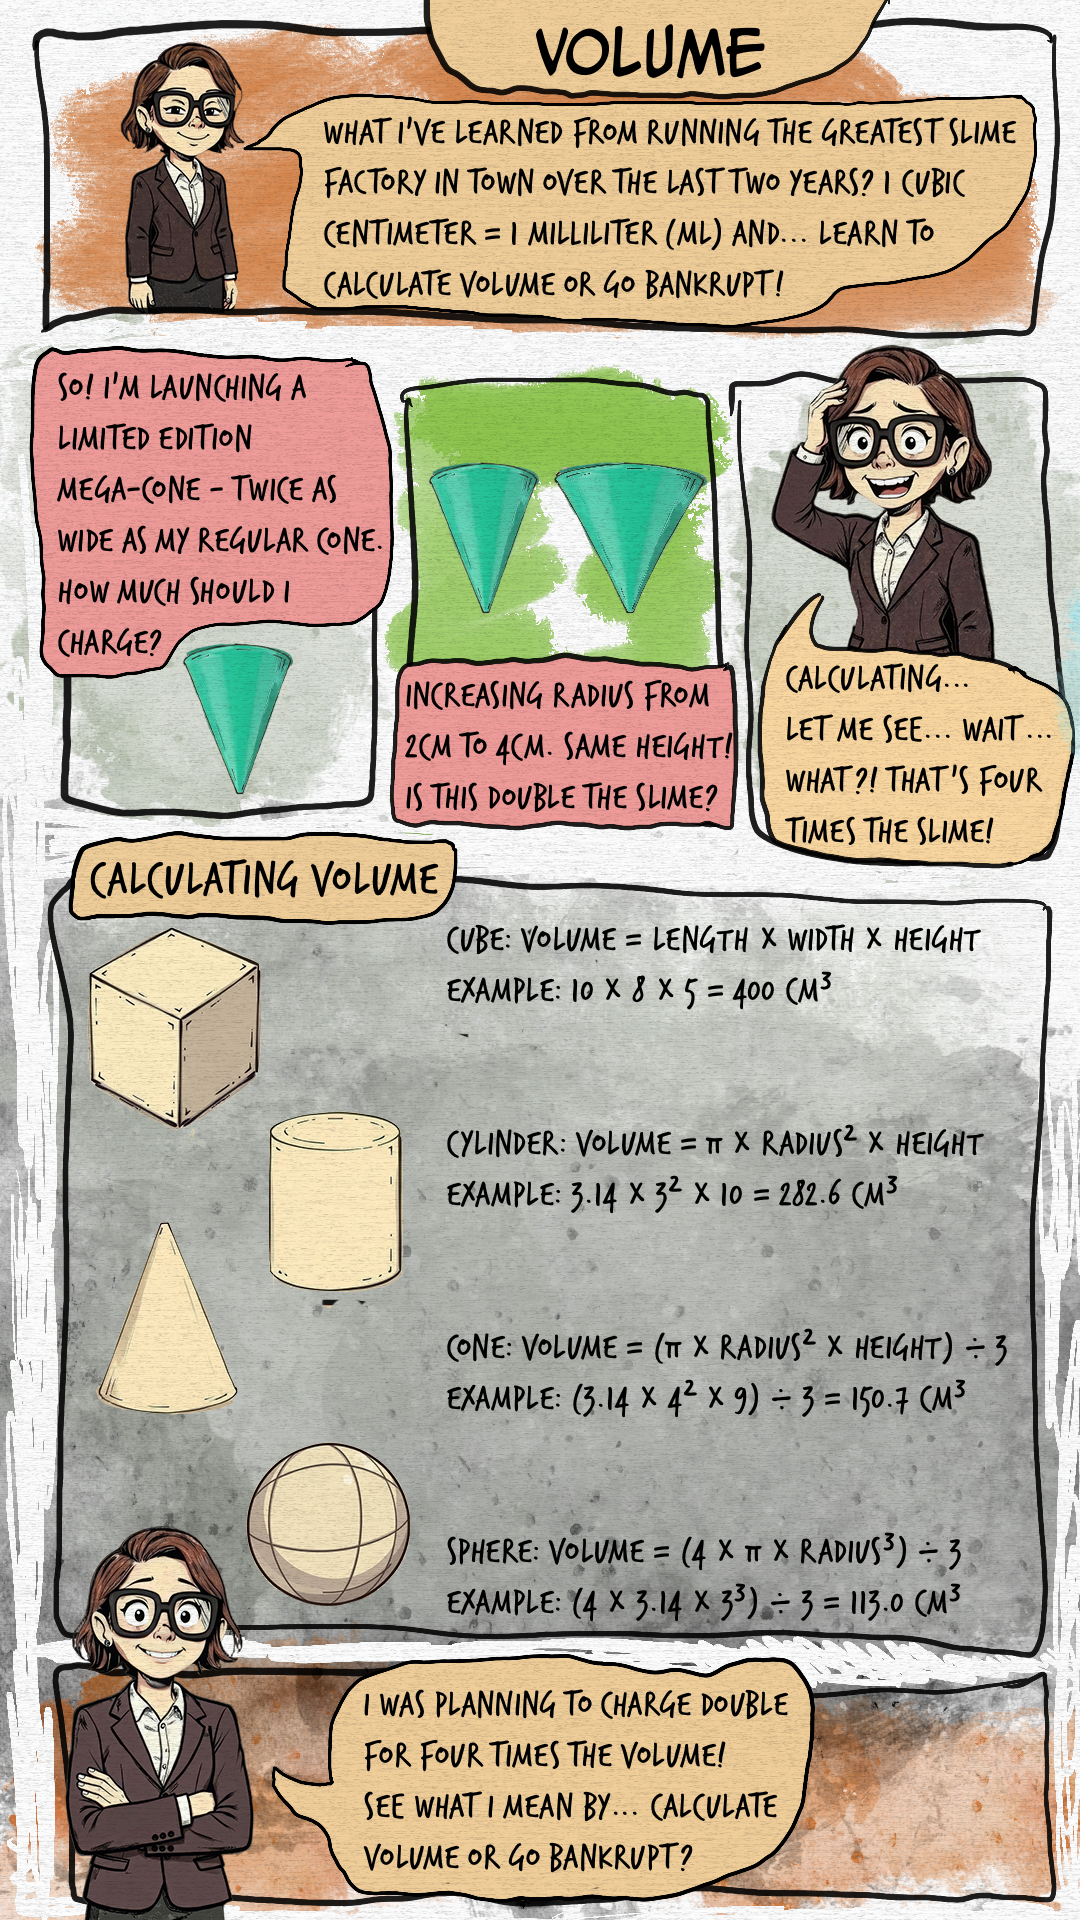 VOLUME
WHAT I'VE LEARNED FROM RUNNING THE GREATEST SLIME
FACTORY IN TOWN OVER THE LAST TWO YEARS? 1 CUBIC
CENTIMETER = 1 MILLILITER (ML) AND... LEARN TO
CALCULATE VOLUME OR GO BANKRUPT!
SO! I'M LAUNCHING A
LIMITED EDITION
MEGA-CONE - TWICE AS
WIDE AS MY REGULAR CONE.
HOW MUCH SHOULD I
CHARGE?
INCREASING RADIUS FROM
2CM TO 4CM. SAME HEIGHT!
IS THIS DOUBLE THE SLIME?
CALCULATING...
LET ME SEE... WAIT...
WHAT?! THAT'S FOUR
TIMES THE SLIME!
CALCULATING VOLUME
CUBE: VOLUME = LENGTH X WIDTH X HEIGHT
EXAMPLE: 10 X 8 X 5 = 400 CM³
CYLINDER: VOLUME = π X RADIUS² X HEIGHT
EXAMPLE: 3.14 X 3² X 10 = 282.6 CM³
CONE: VOLUME = (π X RADIUS² X HEIGHT) ÷ 3
EXAMPLE: (3.14 X 4² X 9) ÷ 3 = 150.7 CM³
SPHERE: VOLUME = (4 X π X RADIUS³) ÷ 3
EXAMPLE: (4 X 3.14 X 3³) ÷ 3 = 113.0 CM³
I WAS PLANNING TO CHARGE DOUBLE
FOR FOUR TIMES THE VOLUME!
SEE WHAT I MEAN BY... CALCULATE
VOLUME OR GO BANKRUPT?